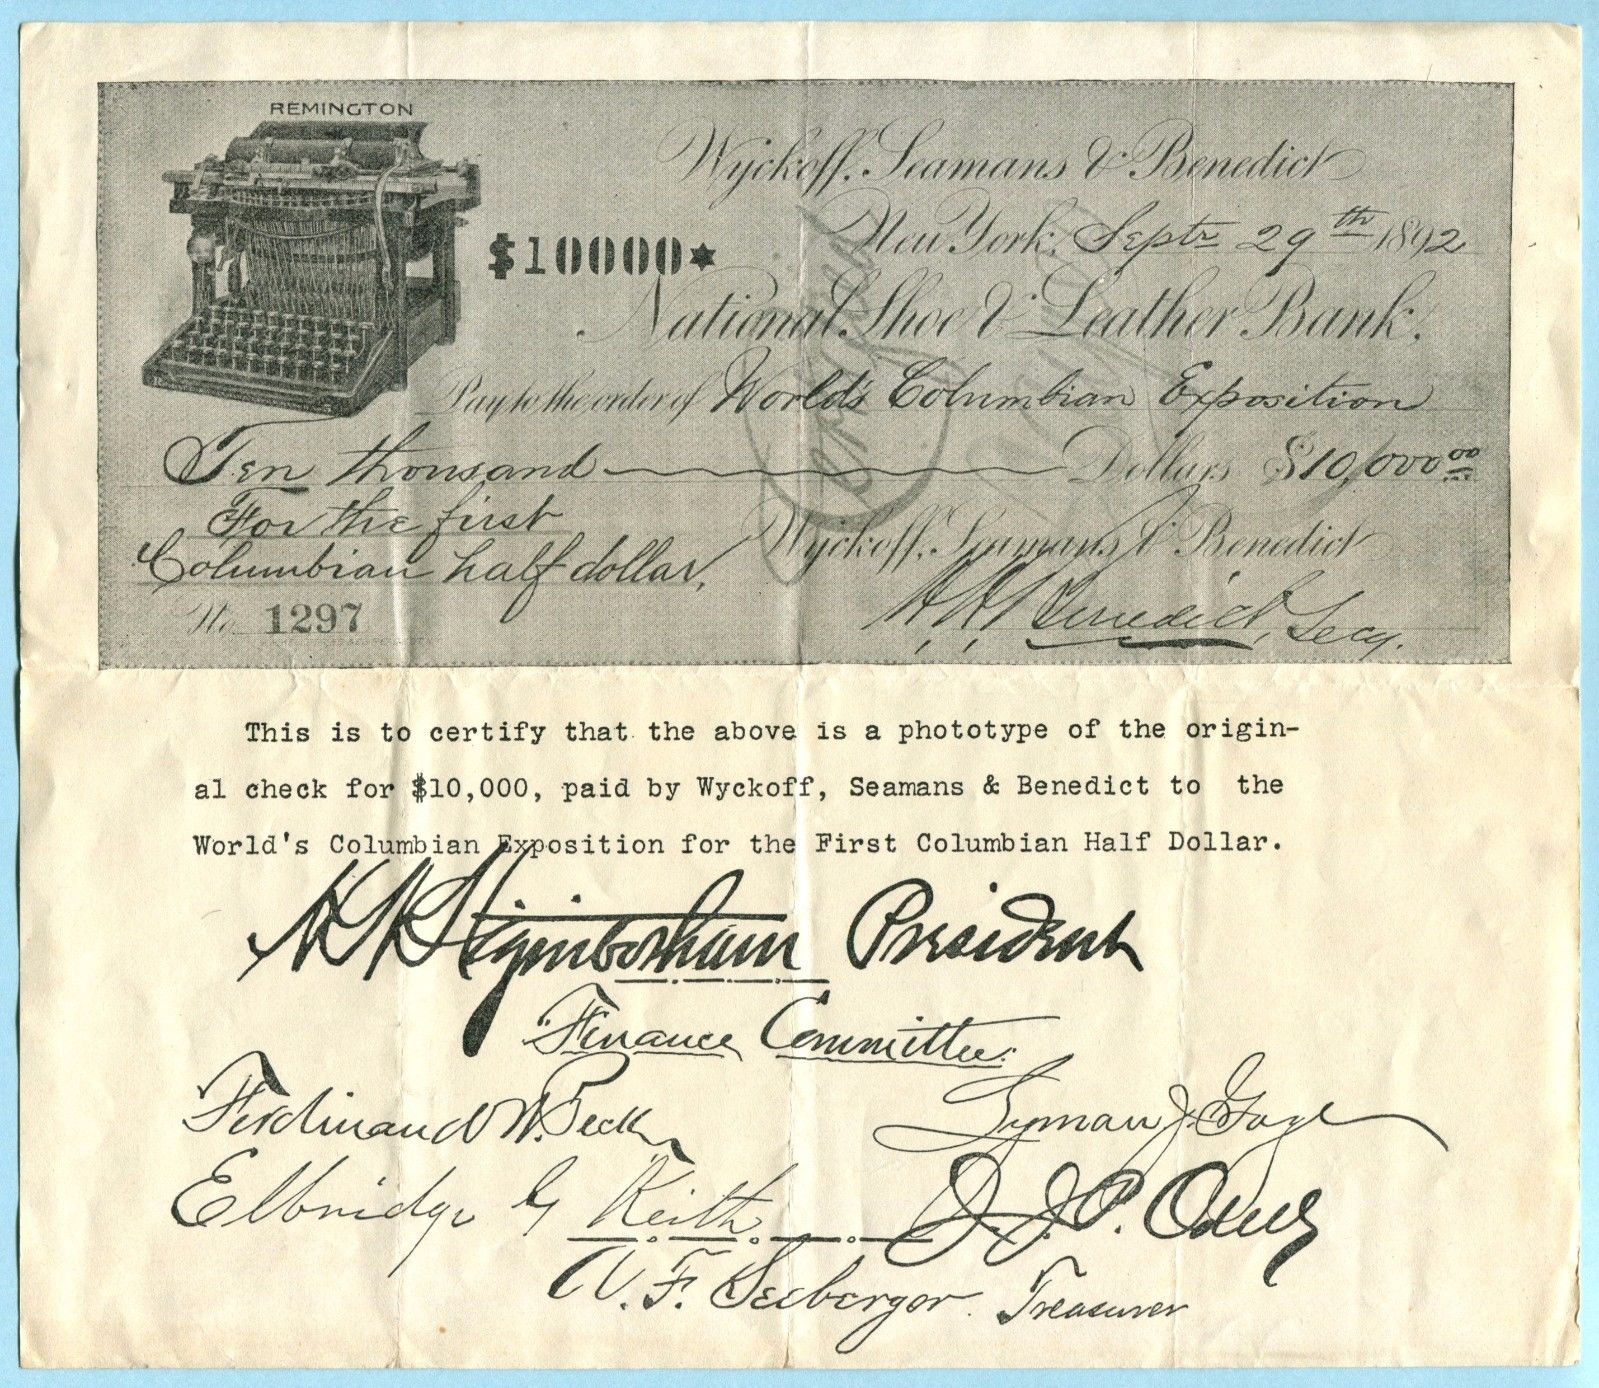 REMINGTON
Wyckoff, Seamans & Benedict
New York, Septr 29th 1892
$10000★
National Shoe & Leather Bank.
Pay to the order of World's Columbian Exposition
Ten thousand Dollars $10,000.00
For the first
Columbian half dollar,
Wyckoff, Seamans & Benedict
No. 1297
H H Benedict, Secy.
This is to certify that the above is a phototype of the origin-
al check for $10,000, paid by Wyckoff, Seamans & Benedict to the
World's Columbian Exposition for the First Columbian Half Dollar.
H N Higinbotham President
Finance Committee:
Ferdinand W. Peck
Lyman J. Gage
Elbridge G Keith
J. J. P. Odell
A. F. Seeberger. Treasurer